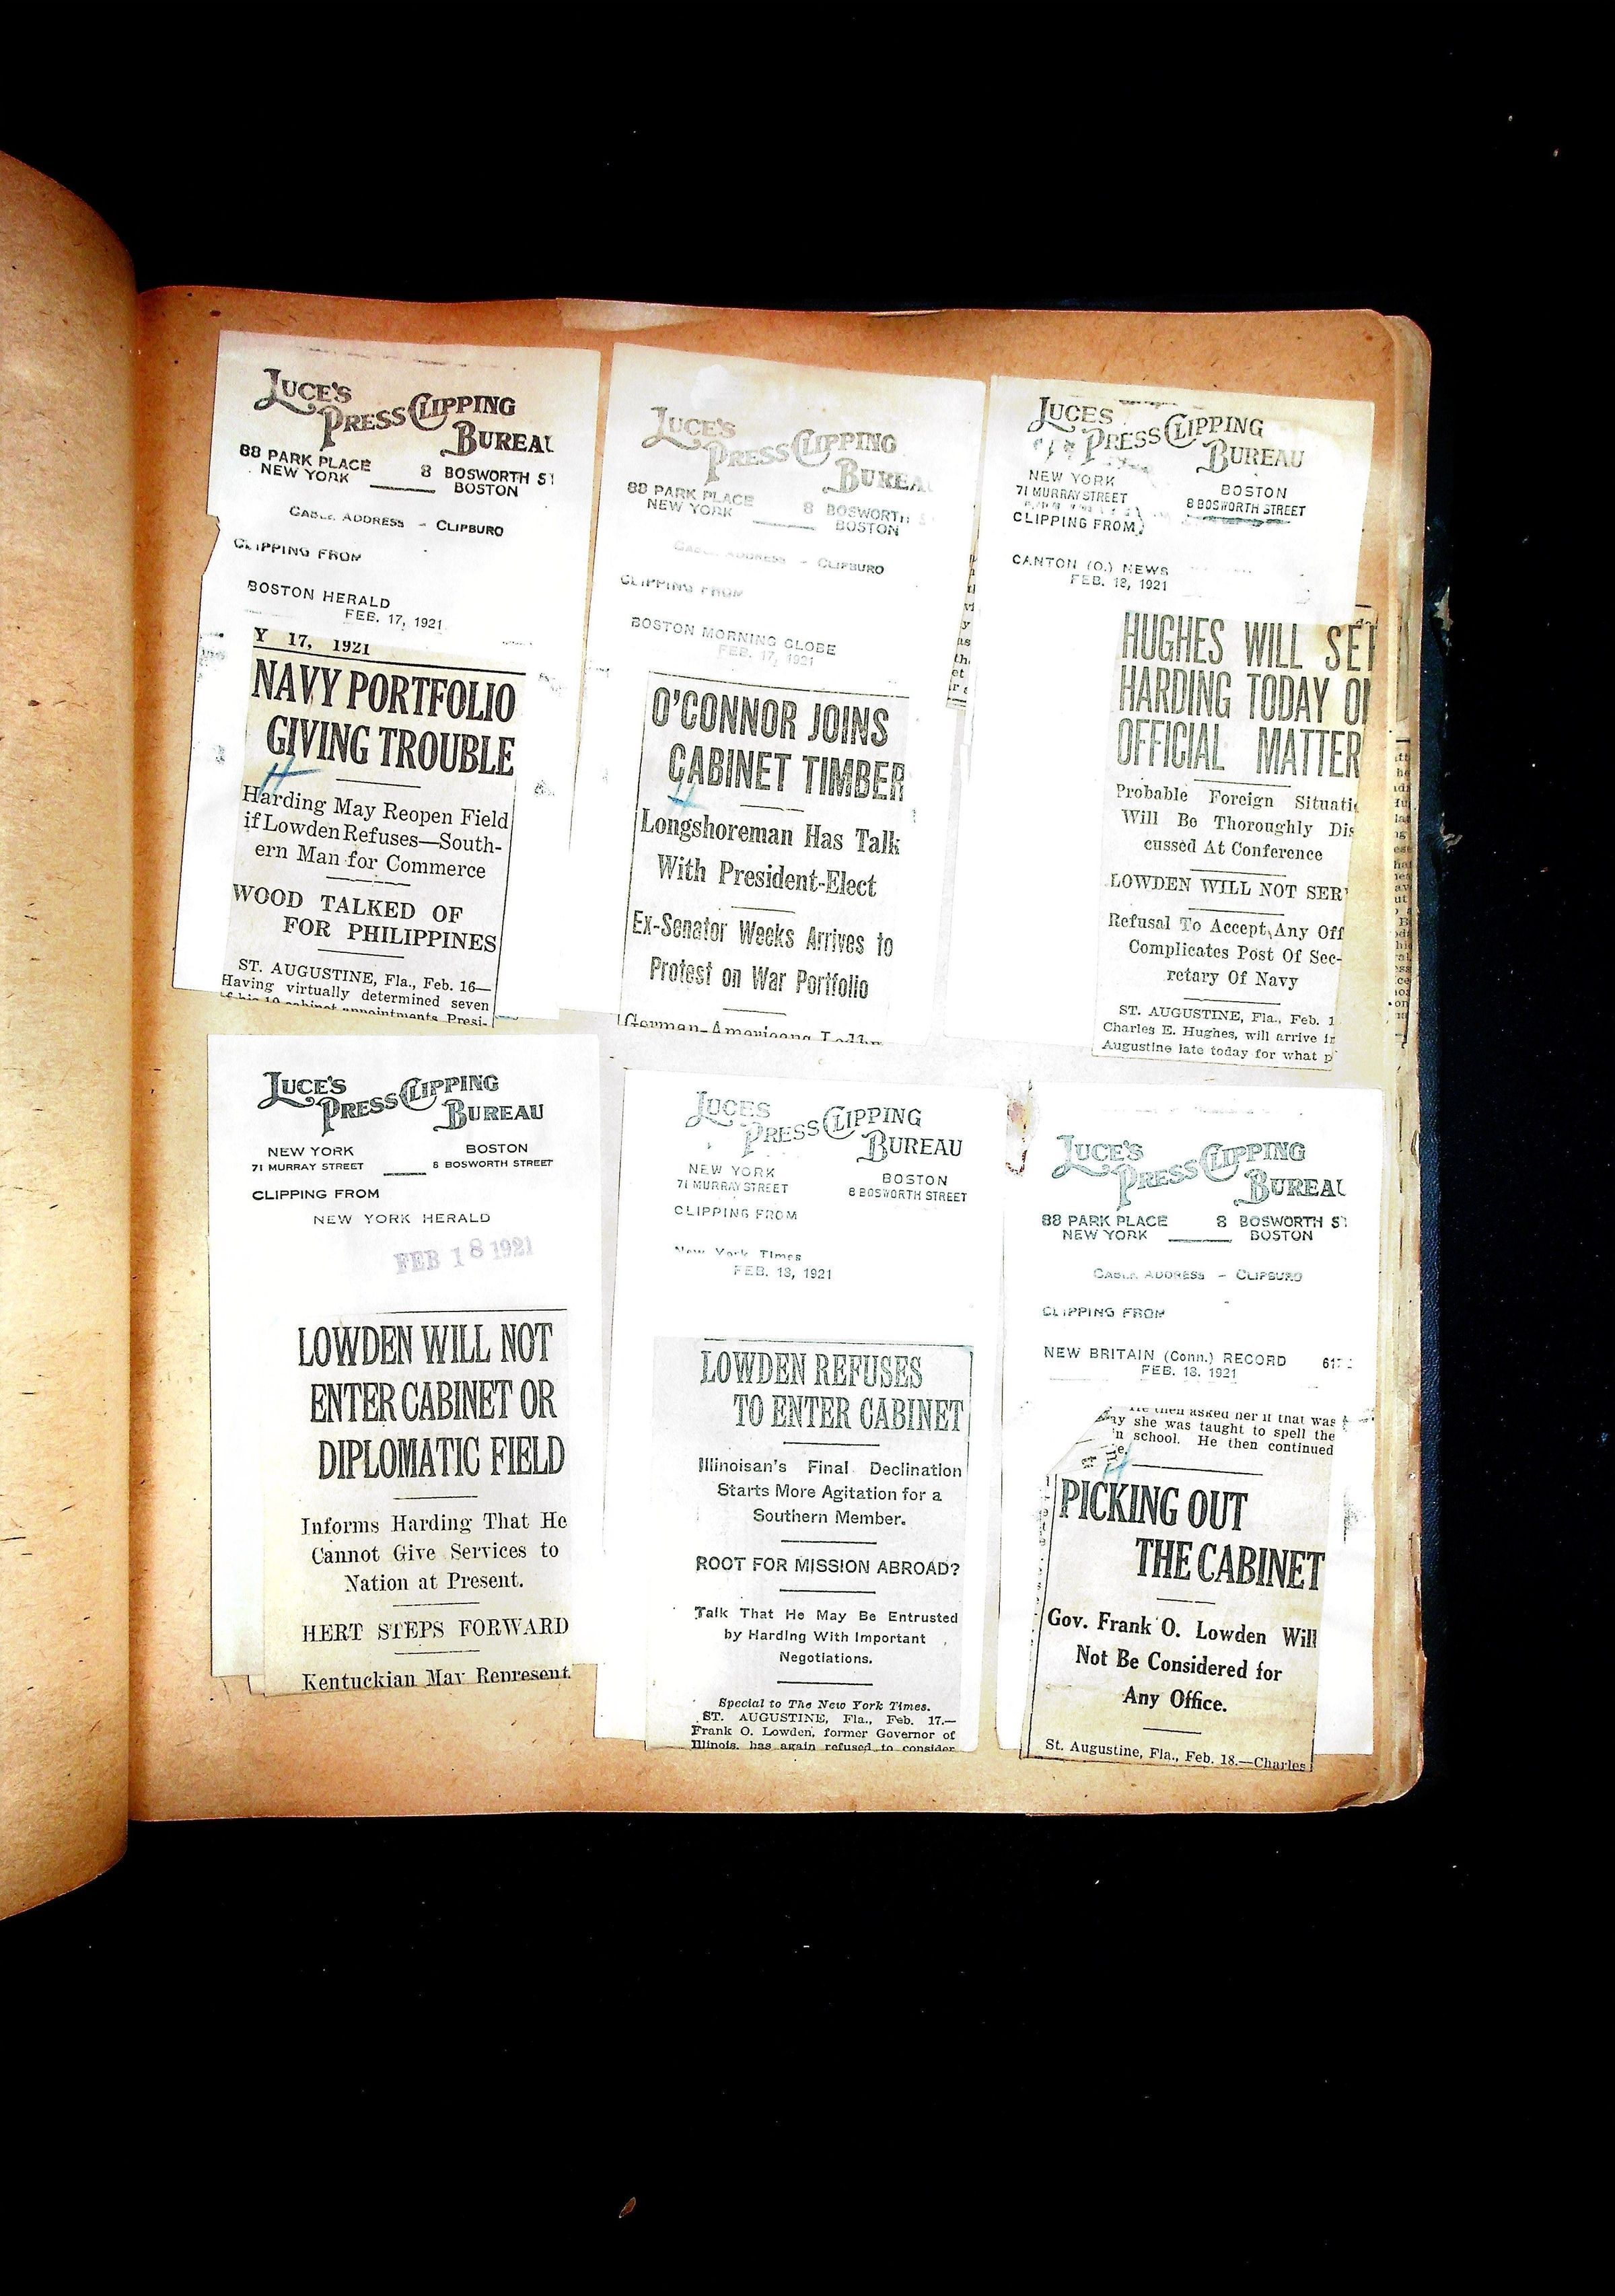 LUCE'S
PRESS CLIPPING
BUREAU
88 PARK PLACE
NEW YORK
8 BOSWORTH ST
BOSTON
CABLE ADDRESS - CLIPBURO
CLIPPING FROM
BOSTON HERALD
FEB. 17, 1921
Y 17, 1921
NAVY PORTFOLIO
GIVING TROUBLE
H
Harding May Reopen Field
if Lowden Refuses—South-
ern Man for Commerce
WOOD TALKED OF
FOR PHILIPPINES
ST. AUGUSTINE, Fla., Feb. 16—
Having virtually determined seven
of his 10 cabinet appointments Presi-
LUCE'S
PRESS CLIPPING
BUREA
88 PARK PLACE
NEW YORK
8 BOSWORTH S
BOSTON
CABLE ADDRESS - CLIPBURO
CLIPPING FROM
BOSTON MORNING GLOBE
FEB. 17, 1921
O'CONNOR JOINS
CABINET TIMBER
H
Longshoreman Has Talk
With President-Elect
Ex-Senator Weeks Arrives to
Protest on War Portfolio
German-Americans
LUCES
PRESS CLIPPING
BUREAU
NEW YORK
71 MURRAY STREET
BOSTON
8 BOSWORTH STREET
CLIPPING FROM
CANTON (O.) NEWS
FEB. 18, 1921
HUGHES WILL SEE
HARDING TODAY ON
OFFICIAL MATTER
Probable Foreign Situatio
Will Be Thoroughly Dis
cussed At Conference
LOWDEN WILL NOT SER
Refusal To Accept Any Off
Complicates Post Of Sec-
retary Of Navy
ST. AUGUSTINE, Fla., Feb. 1
Charles E. Hughes, will arrive in
Augustine late today for what p
LUCE'S
PRESS CLIPPING
BUREAU
NEW YORK
71 MURRAY STREET
BOSTON
8 BOSWORTH STREET
CLIPPING FROM
NEW YORK HERALD
FEB 18 1921
LOWDEN WILL NOT
ENTER CABINET OR
DIPLOMATIC FIELD
Informs Harding That He
Cannot Give Services to
Nation at Present.
HERT STEPS FORWARD
Kentuckian May Represent
LUCES
PRESS CLIPPING
BUREAU
NEW YORK
71 MURRAY STREET
BOSTON
8 BOSWORTH STREET
CLIPPING FROM
New York Times
FEB. 18, 1921
LOWDEN REFUSES
TO ENTER CABINET
Illinoisan's Final Declination
Starts More Agitation for a
Southern Member.
ROOT FOR MISSION ABROAD?
Talk That He May Be Entrusted
by Harding With Important
Negotiations.
Special to The New York Times.
ST. AUGUSTINE, Fla., Feb. 17.—
Frank O. Lowden, former Governor of
Illinois, has again refused to consider
LUCE'S
PRESS CLIPPING
BUREAU
88 PARK PLACE
NEW YORK
8 BOSWORTH ST
BOSTON
CABLE ADDRESS - CLIPBURO
CLIPPING FROM
NEW BRITAIN (Conn.) RECORD
FEB. 18, 1921
He then asked her if that was
ay she was taught to spell the
in school. He then continued
H
PICKING OUT
THE CABINET
Gov. Frank O. Lowden Will
Not Be Considered for
Any Office.
St. Augustine, Fla., Feb. 18.—Charles